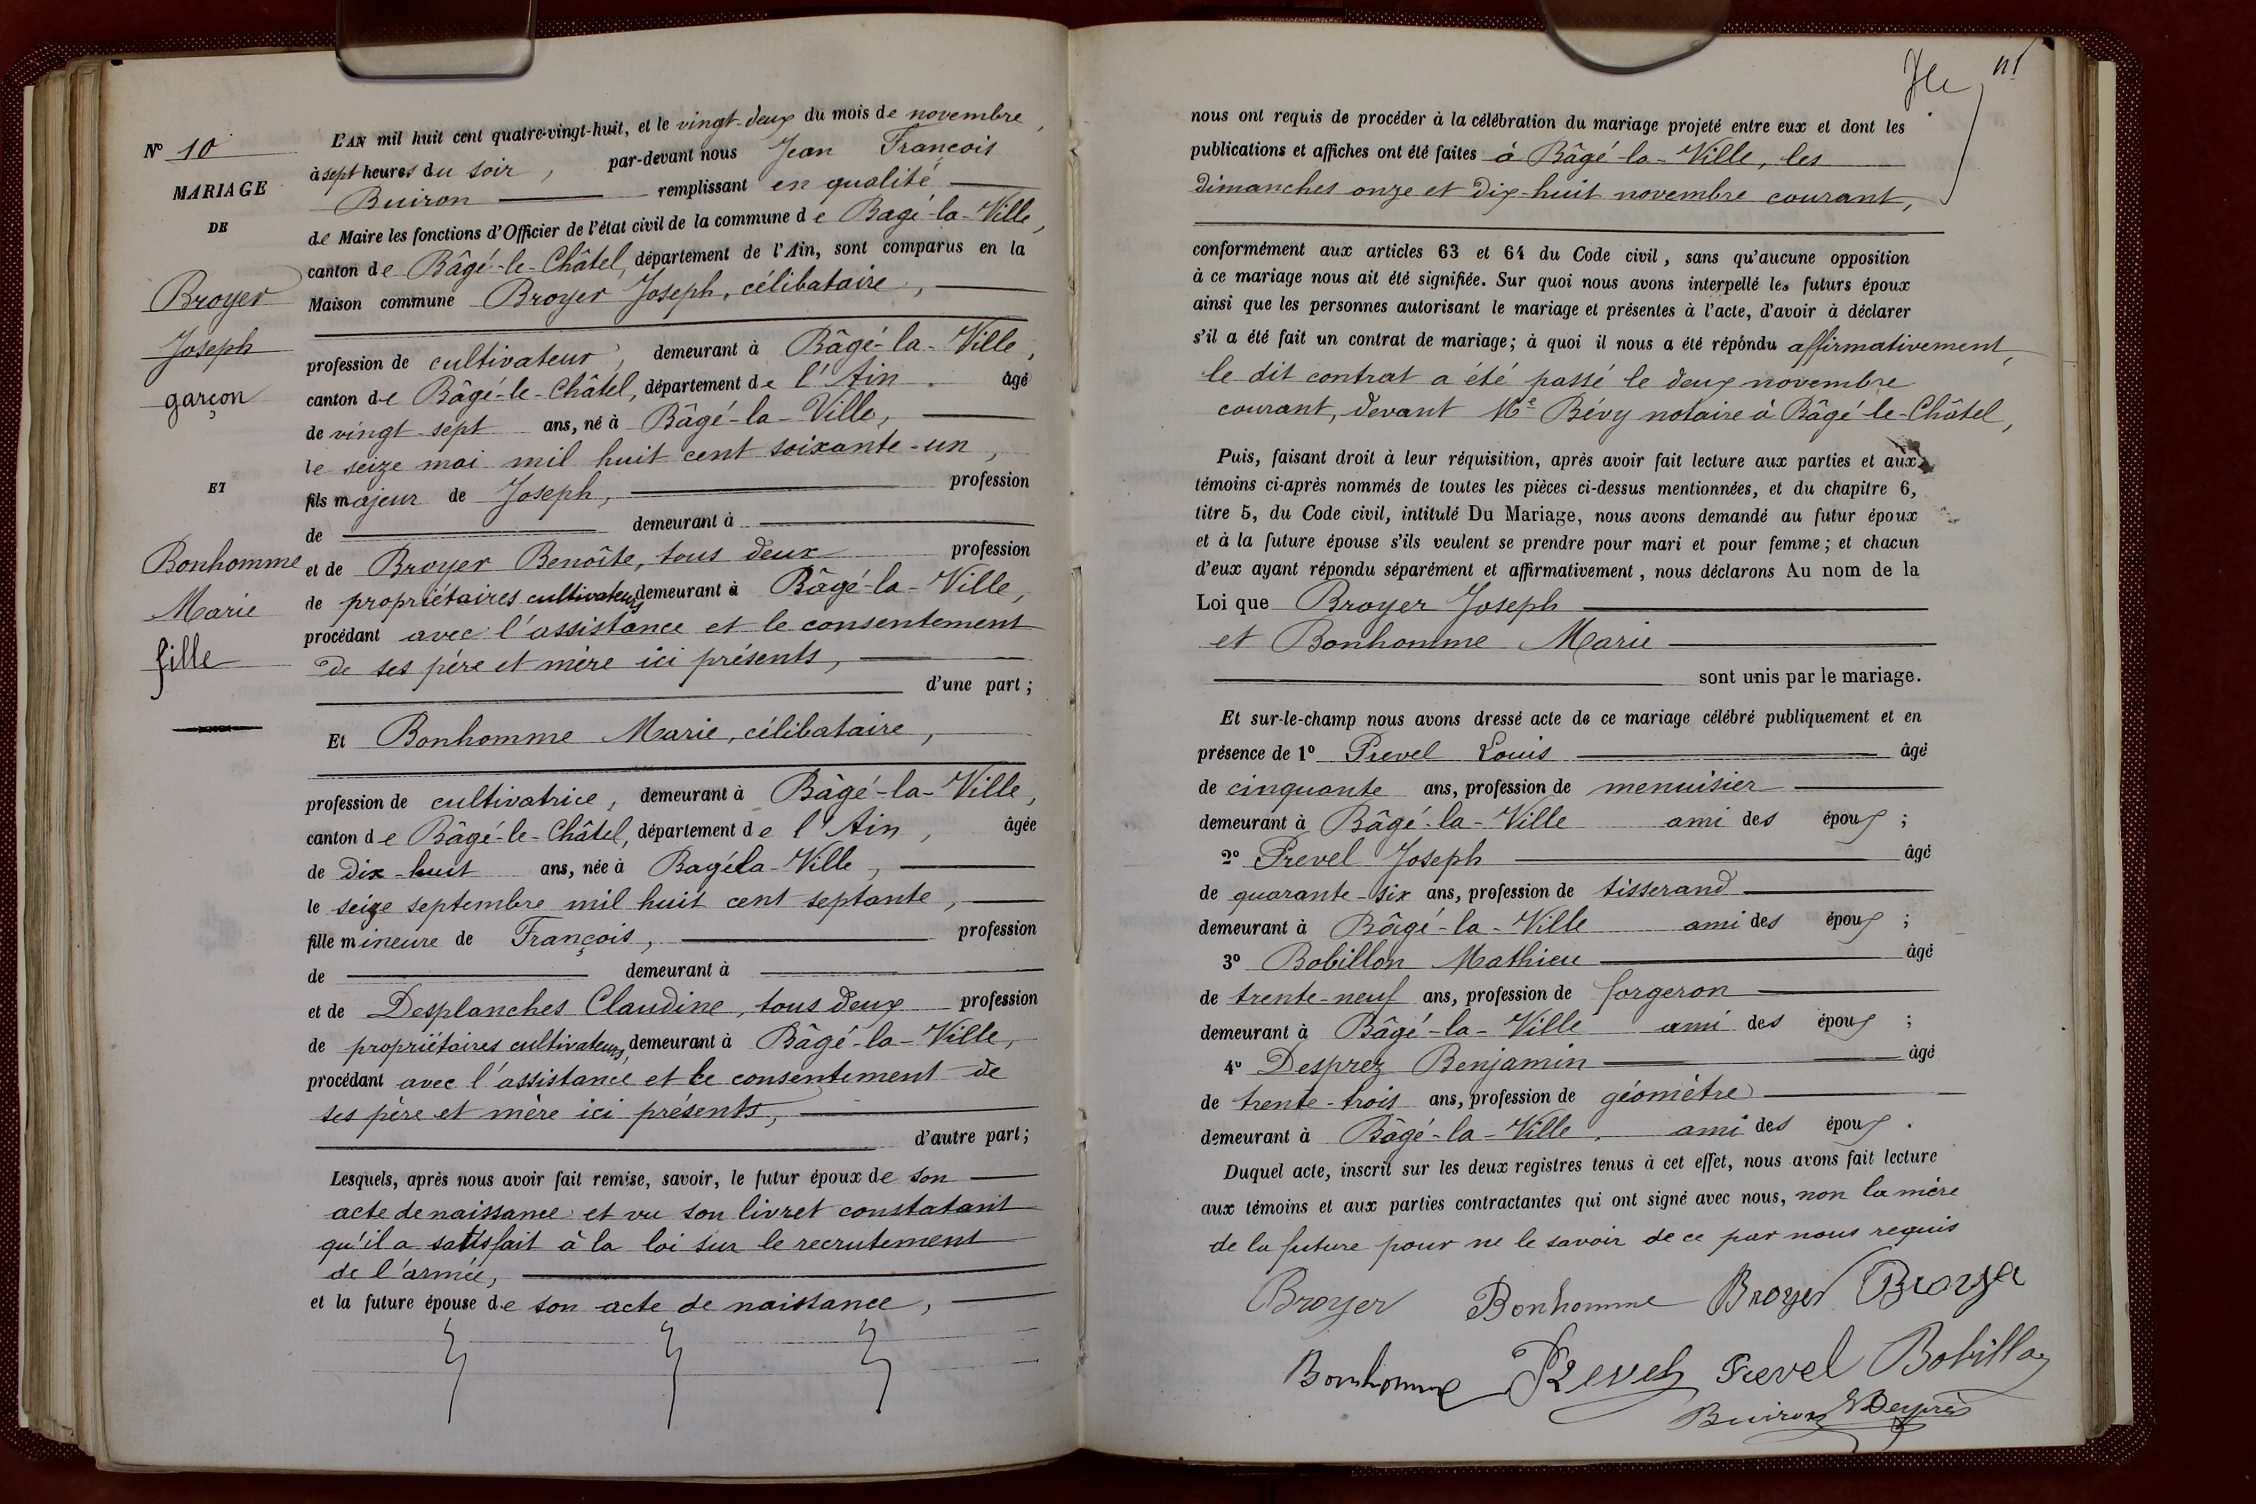 N° 10
MARIAGE
DE
Broyer
Joseph
garçon
ET
Bonhomme
Marie
fille
L'AN mil huit cent quatre-vingt-huit, et le vingt-deux du mois de novembre,
à sept heures du soir, par-devant nous Jean François
Buiron remplissant en qualité
de Maire les fonctions d'Officier de l'état civil de la commune de Bagé-la-Ville,
canton de Bâgé-le-Châtel, département de l'Ain, sont comparus en la
Maison commune Broyer Joseph, célibataire,
profession de cultivateur, demeurant à Bâgé-la-Ville,
canton de Bâgé-le-Châtel, département de l'Ain. âgé
de vingt-sept ans, né à Bâgé-la-Ville,
le seize mai mil huit cent soixante-un,
fils majeur de Joseph, profession
de demeurant à
et de Broyer Benoîte, tous deux profession
de propriétaires cultivateurs demeurant à Bâgé-la-Ville,
procédant avec l'assistance et le consentement
de ses père et mère ici présents,
d'une part;
Et Bonhomme Marie, célibataire,
profession de cultivatrice, demeurant à Bâgé-la-Ville,
canton de Bâgé-le-Châtel, département de l'Ain, âgée
de dix-huit ans, née à Bagé la-Ville,
le seize septembre mil huit cent septante,
fille mineure de François, profession
de demeurant à
et de Desplanches Claudine, tous deux profession
de propriétaires cultivateurs, demeurant à Bâgé-la-Ville,
procédant avec l'assistance et le consentement de
ses père et mère ici présents,
d'autre part;
Lesquels, après nous avoir fait remise, savoir, le futur époux de son
acte de naissance et vu son livret constatant
qu'il a satisfait à la loi sur le recrutement
de l'armée,
et la future épouse de son acte de naissance,
nous ont requis de procéder à la célébration du mariage projeté entre eux et dont les
publications et affiches ont été faites à Bâgé-la-Ville, les
dimanches onze et dix-huit novembre courant,
conformément aux articles 63 et 64 du Code civil, sans qu'aucune opposition
à ce mariage nous ait été signifiée. Sur quoi nous avons interpellé les futurs époux
ainsi que les personnes autorisant le mariage et présentes à l'acte, d'avoir à déclarer
s'il a été fait un contrat de mariage; à quoi il nous a été répondu affirmativement,
le dit contrat a été passé le deux novembre
courant, devant Me Bévy notaire à Bâgé-le-Châtel,
Puis, faisant droit à leur réquisition, après avoir fait lecture aux parties et aux
témoins ci-après nommés de toutes les pièces ci-dessus mentionnées, et du chapitre 6,
titre 5, du Code civil, intitulé Du Mariage, nous avons demandé au futur époux
et à la future épouse s'ils veulent se prendre pour mari et pour femme; et chacun
d'eux ayant répondu séparément et affirmativement, nous déclarons Au nom de la
Loi que Broyer Joseph
et Bonhomme Marie
sont unis par le mariage.
Et sur-le-champ nous avons dressé acte de ce mariage célébré publiquement et en
présence de 1° Prevel Louis âgé
de cinquante ans, profession de menuisier
demeurant à Bâgé-la-Ville ami des époux;
2° Prevel Joseph âgé
de quarante-six ans, profession de tisserand
demeurant à Bâgé-la-Ville ami des époux;
3° Bobillon Mathieu âgé
de trente-neuf ans, profession de forgeron
demeurant à Bâgé-la-Ville ami des époux;
4° Desprez Benjamin âgé
de trente-trois ans, profession de géomètre
demeurant à Bâgé-la-Ville. ami des époux.
Duquel acte, inscrit sur les deux registres tenus à cet effet, nous avons fait lecture
aux témoins et aux parties contractantes qui ont signé avec nous, non la mère
de la future pour ne le savoir de ce par nous requis
Broyer Bonhomme Broyer Broye
Bonhomme Prevel Prevel Bobillon
Buiron